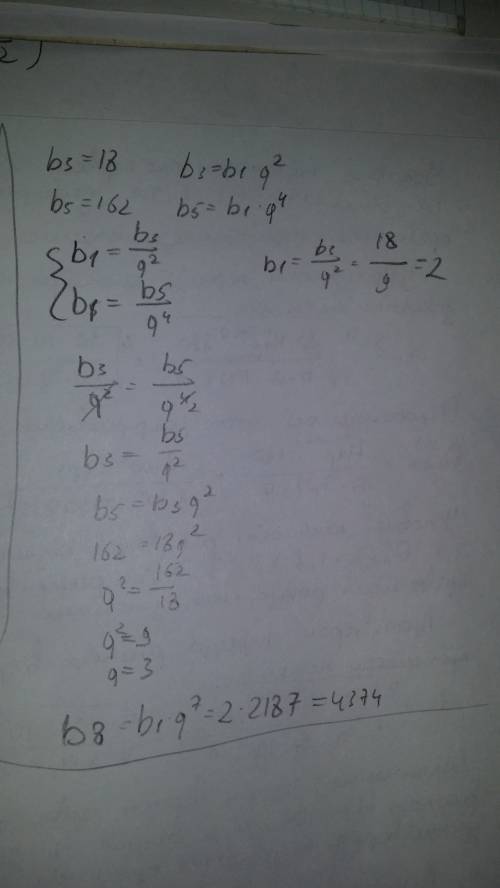 2)
b3 = 18    b3 = b1 · q²
b5 = 162    b5 = b1 · q⁴
{ b1 = b3/q²    b1 = b3/q² = 18/9 = 2
b1 = b5/q⁴
b3/q² = b5/q⁴ 2
b3 = b5/q²
b5 = b3 q²
162 = 18q²
q² = 162/18
q² = 9
q = 3
b8 = b1 · q⁷ = 2 · 2187 = 4374